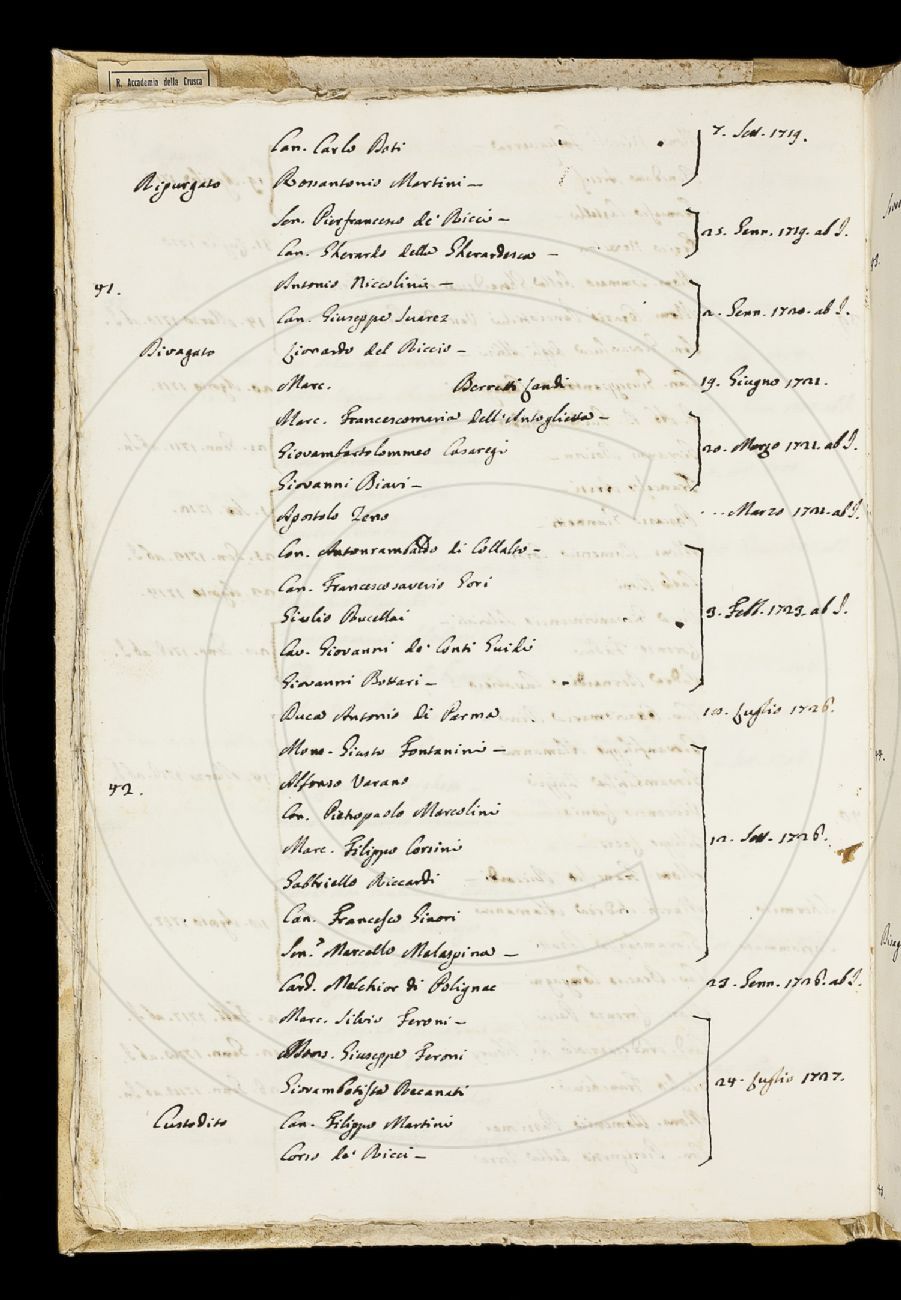 R. Accademia della Crusca
Can. Carlo Doti 7. Sett. 1719.
Ripurgato Rossantonio Martini —
Sen. Pierfrancesco de' Ricci — 25. Genn. 1719. ab I.
Can. Gherardo della Gherardesca —
41. Antonio Niccolini —
Can. Giuseppe Suarez 2. Genn. 1720. ab I.
Divagato Lionardo del Riccio —
Marc. Berretti Landi 19. Giugno 1721.
Marc. Francescomaria dell'Antoglietta —
Giovambartolommeo Casaregi 20. Marzo 1721. ab I.
Giovanni Biavi —
Apostolo Zeno ... Marzo 1721. ab I.
Con. Antonrambaldo di Collalto —
Can. Francescosaverio Gori
Giulio Rucellai 3. Febb. 1723. ab I.
Cav. Giovanni de' Conti Guidi
Giovanni Bottari —
Duca Antonio di Parma 10. Luglio 1726.
Mons. Giusto Fontanini —
42. Alfonso Varano
Con. Pietropaolo Marcolini
Marc. Filippo Corsini 12. Sett. 1726.
Gabbriello Riccardi
Can. Francesco Ginori
Sen.e Marcello Malaspina —
Card. Melchior di Polignac 23. Genn. 1726. ab I.
Marc. Silvio Feroni —
Mons. Giuseppe Feroni
Giovambatista Recanati 24. Luglio 1727.
Custodito Can. Filippo Martini
Corso de' Ricci —